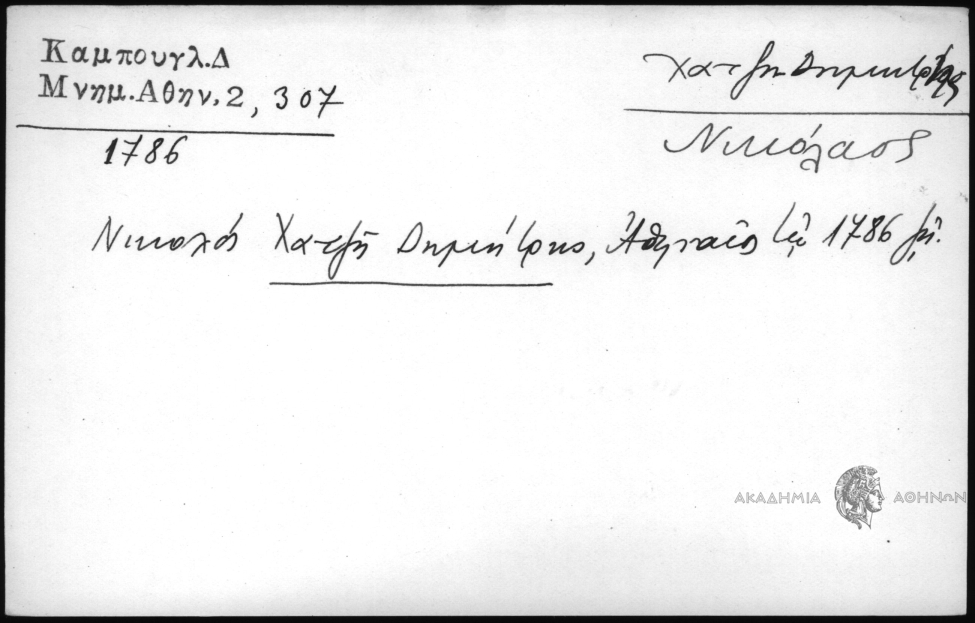 Καμπουγλ.Δ
Μνημ.Αθην.2, 307
1786
Χατζη Δημήτρης
Νικόλαος
Νικολός Χατζῆ Δημήτρης, Ἀθηναῖος τῷ 1786 ζῆ.
ΑΚΑΔΗΜΙΑ ΑΘΗΝΩΝ